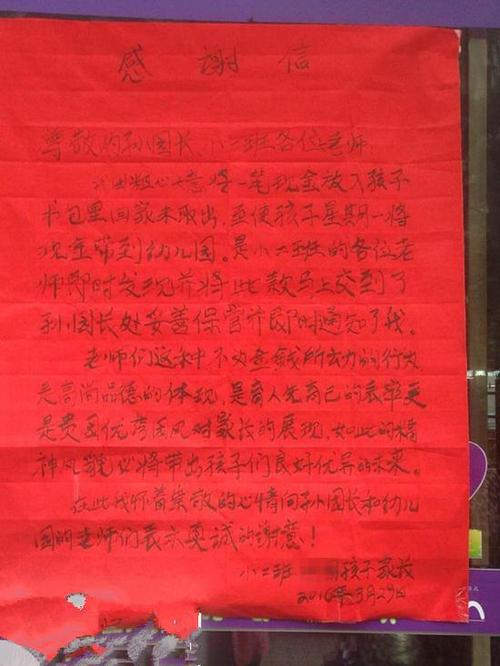 感谢信
尊敬的孙园长、小二班各位老师
我由粗心大意将一笔现金放入孩子
书包里回家未取出，至使孩子星期一将
现金带到幼儿园。是小二班的各位老
师即时发现并将此款马上交到了
孙园长处妥善保管并即时通知了我。
老师们这种不为金钱所动的行为
是高尚品德的体现，是育人先育己的表率更
是贵园优秀园风对家长的展现，如此的精
神风貌必将带出孩子们良好优异的未来。
在此我怀着崇敬的心情向孙园长和幼儿
园的老师们表示真诚的谢意！
小二班 孩子家长
2016年3月29日